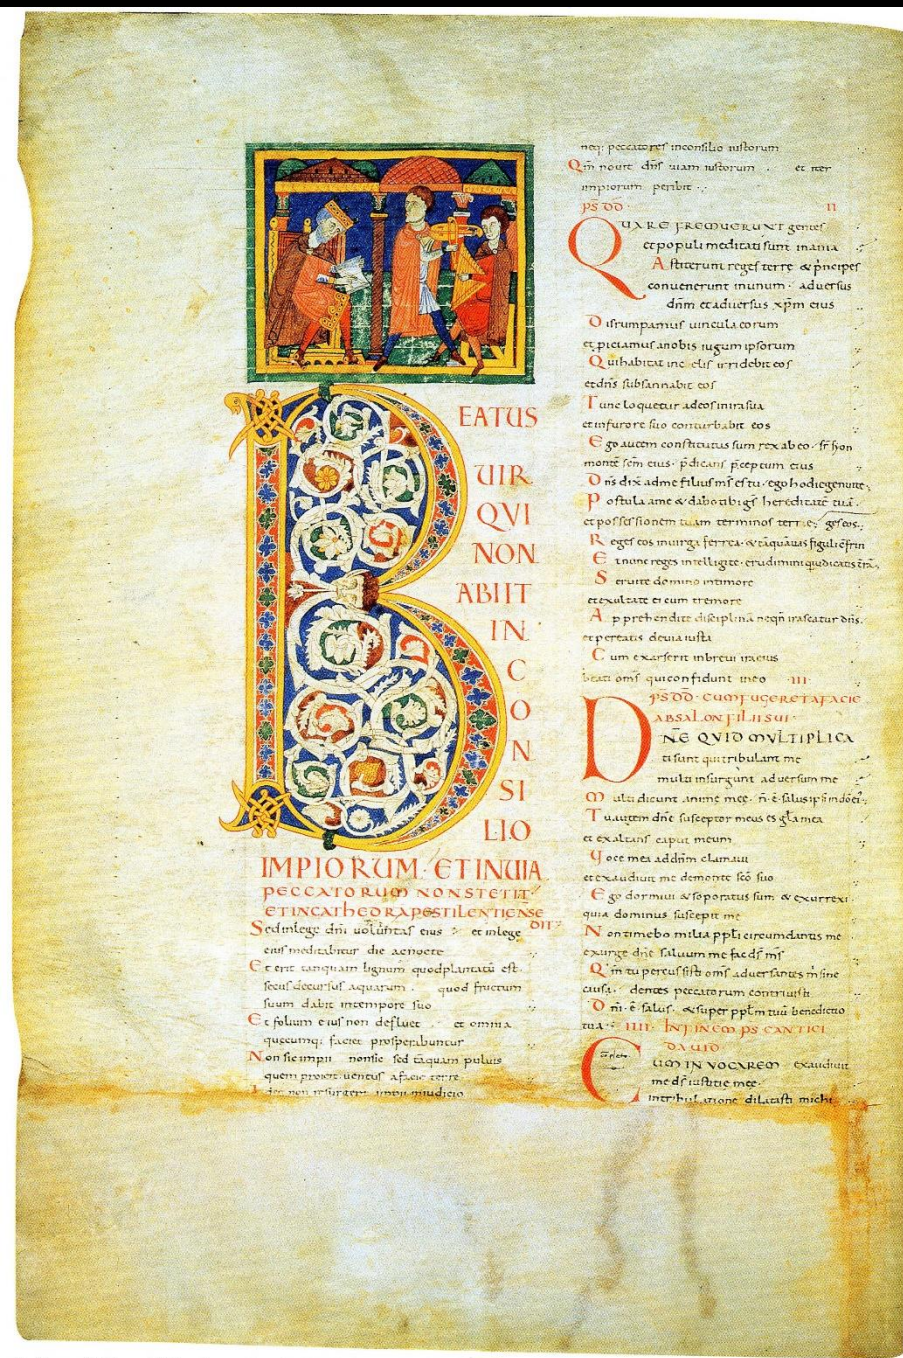 BEATUS
UIR
QVI
NON
ABIIT
IN
C
O
N
SI
LIO
IMPIORUM · ET INUIA
PECCATORUM NON STETIT ·
ET IN CATHEDRA PESTILENTIE NSE
DIT ·
Sed inlege dn̄i uolūntas eius et inlege
eius meditabitur die ac nocte
Et erit tanquam lignum quod plantatū est
secus decursus aquarum · quod fructum
suum dabit in tempore suo
Et folium eius non defluet et omnia
quecumq; faciet prosperabuntur
Non sic impii non sic sed tāquam puluis
quem proicit uentus afacie terre
non resurgent impii in iudicio
neq; peccatores in consilio iustorum
Qm̄ nouit dn̄s uiam iustorum · et iter
impiorum peribit ·
PS DD II
QUARE FREMUERUNT gentes
et populi meditati sunt inania
Astiterunt reges terre & p̄ncipes
conuenerunt in unum · aduersus
dn̄m et aduersus xp̄m eius
Disrumpamus uincula eorum
et piciamus anobis iugum ipsorum
Qui habitat in celis irridebit eos
et dn̄s subsannabit eos
Tunc loquetur adeos in ira sua
et in furore suo conturbabit eos
Ego autem constitutus sum rex ab eo · sr̄ syon
montē scm̄ eius · p̄dicans p̄ceptum eius
Dn̄s dix̄ ad me filius ms̄ es tu · ego hodie genui te ·
Postula a me & dabo tibi gs̄ hereditatē tuā ·
et possessionem tuam terminos terre ·
Reges eos in uirga ferrea · & tāquā uas figuli c̄frin
Et nunc reges intelligite · erudimini qui iudicatis
Seruite domino in timore
et exultate ei cum tremore
Apprehendite disciplinā neqn̄ irascatur dn̄s
et pereatis de uia iusta
Cum exarserit in breui ira eius
beati oms̄ qui confidunt in eo · III ·
PS DD · CUM FUGERET A FACIE
ABSALON FILII SUI ·
DNE QVID MVLTIPLICA
ti sunt qui tribulant me
multi insurgunt aduersum me
Multi dicunt anime mee · n̄ ē salus ipsi in dō ei ·
Tu autem dn̄e susceptor meus es gl̄a mea
et exaltans caput meum
Uoce mea ad dn̄m clamaui
et exaudiuit me de monte scō suo
Ego dormiui & soporatus sum & exurrexi ·
quia dominus suscepit me
Non timebo milia ppl̄i circumdantis me
exurge dn̄e saluum me fac ds̄ ms̄
Qm̄ tu percussisti oms̄ aduersantes m̄ sine
causa · dentes peccatorum contriuisti
Dn̄i · ē · salus · & super ppl̄m tuū benedictio
tua · IIII · IN FINEM PS CANTICI
DAUID
CUM INVOCAREM · exaudiuit
me ds̄ iustitie mee ·
in tribulatione dilatasti michi